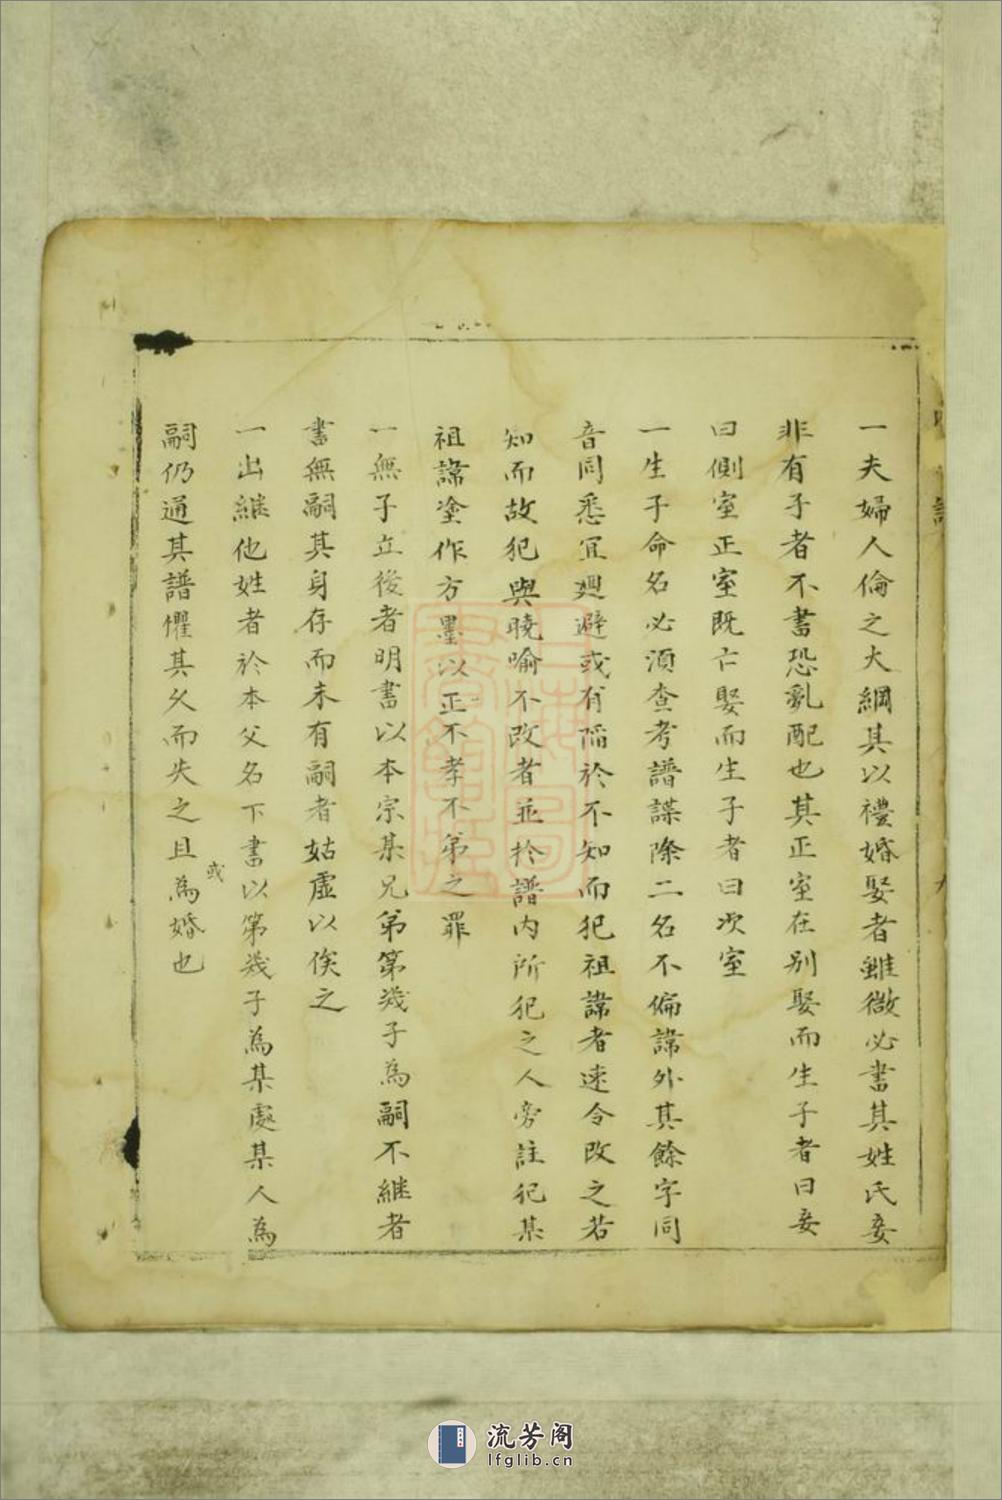 一夫婦人倫之大綱其以禮婚娶者雖微必書其姓氏妾
非有子者不書恐亂配也其正室在別娶而生子者曰妾
曰側室正室既亡娶而生子者曰次室
一生子命名必須查考譜諜除二名不偏諱外其餘字同
音同悉宜廻避或有陷於不知而犯祖諱者速令改之若
知而故犯與曉喻不改者並於譜内所犯之人旁註犯某
祖諱塗作方墨以正不孝不弟之罪
一無子立後者明書以本宗某兄弟第幾子為嗣不継者
書無嗣其身存而未有嗣者姑虛以俟之
一出継他姓者於本父名下書以第幾子為某處某人為
嗣仍通其譜懼其久而失之且或為婚也
流芳阁
lfglib.cn